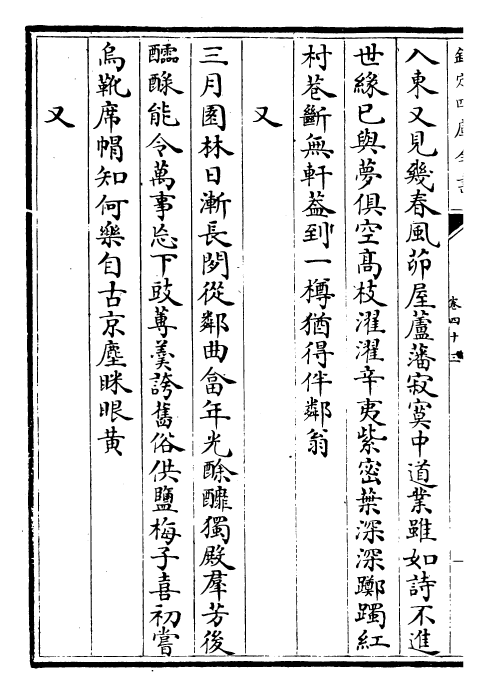 欽定四庫全書
卷四十二
入東又見幾春風茆屋蘆藩寂寞中道業雖如詩不進
世緣已與夢俱空髙枝濯濯辛夷紫密葉深深躑躅紅
村巷斷無軒葢到一樽猶得伴鄰翁
又
三月園林日漸長閑從鄰曲畲年光酴醿獨殿羣芳後
醹醁能令萬事忘下豉蓴羮誇舊俗供鹽梅子喜初嘗
烏靴席帽知何樂自古京塵眯眼黄
又